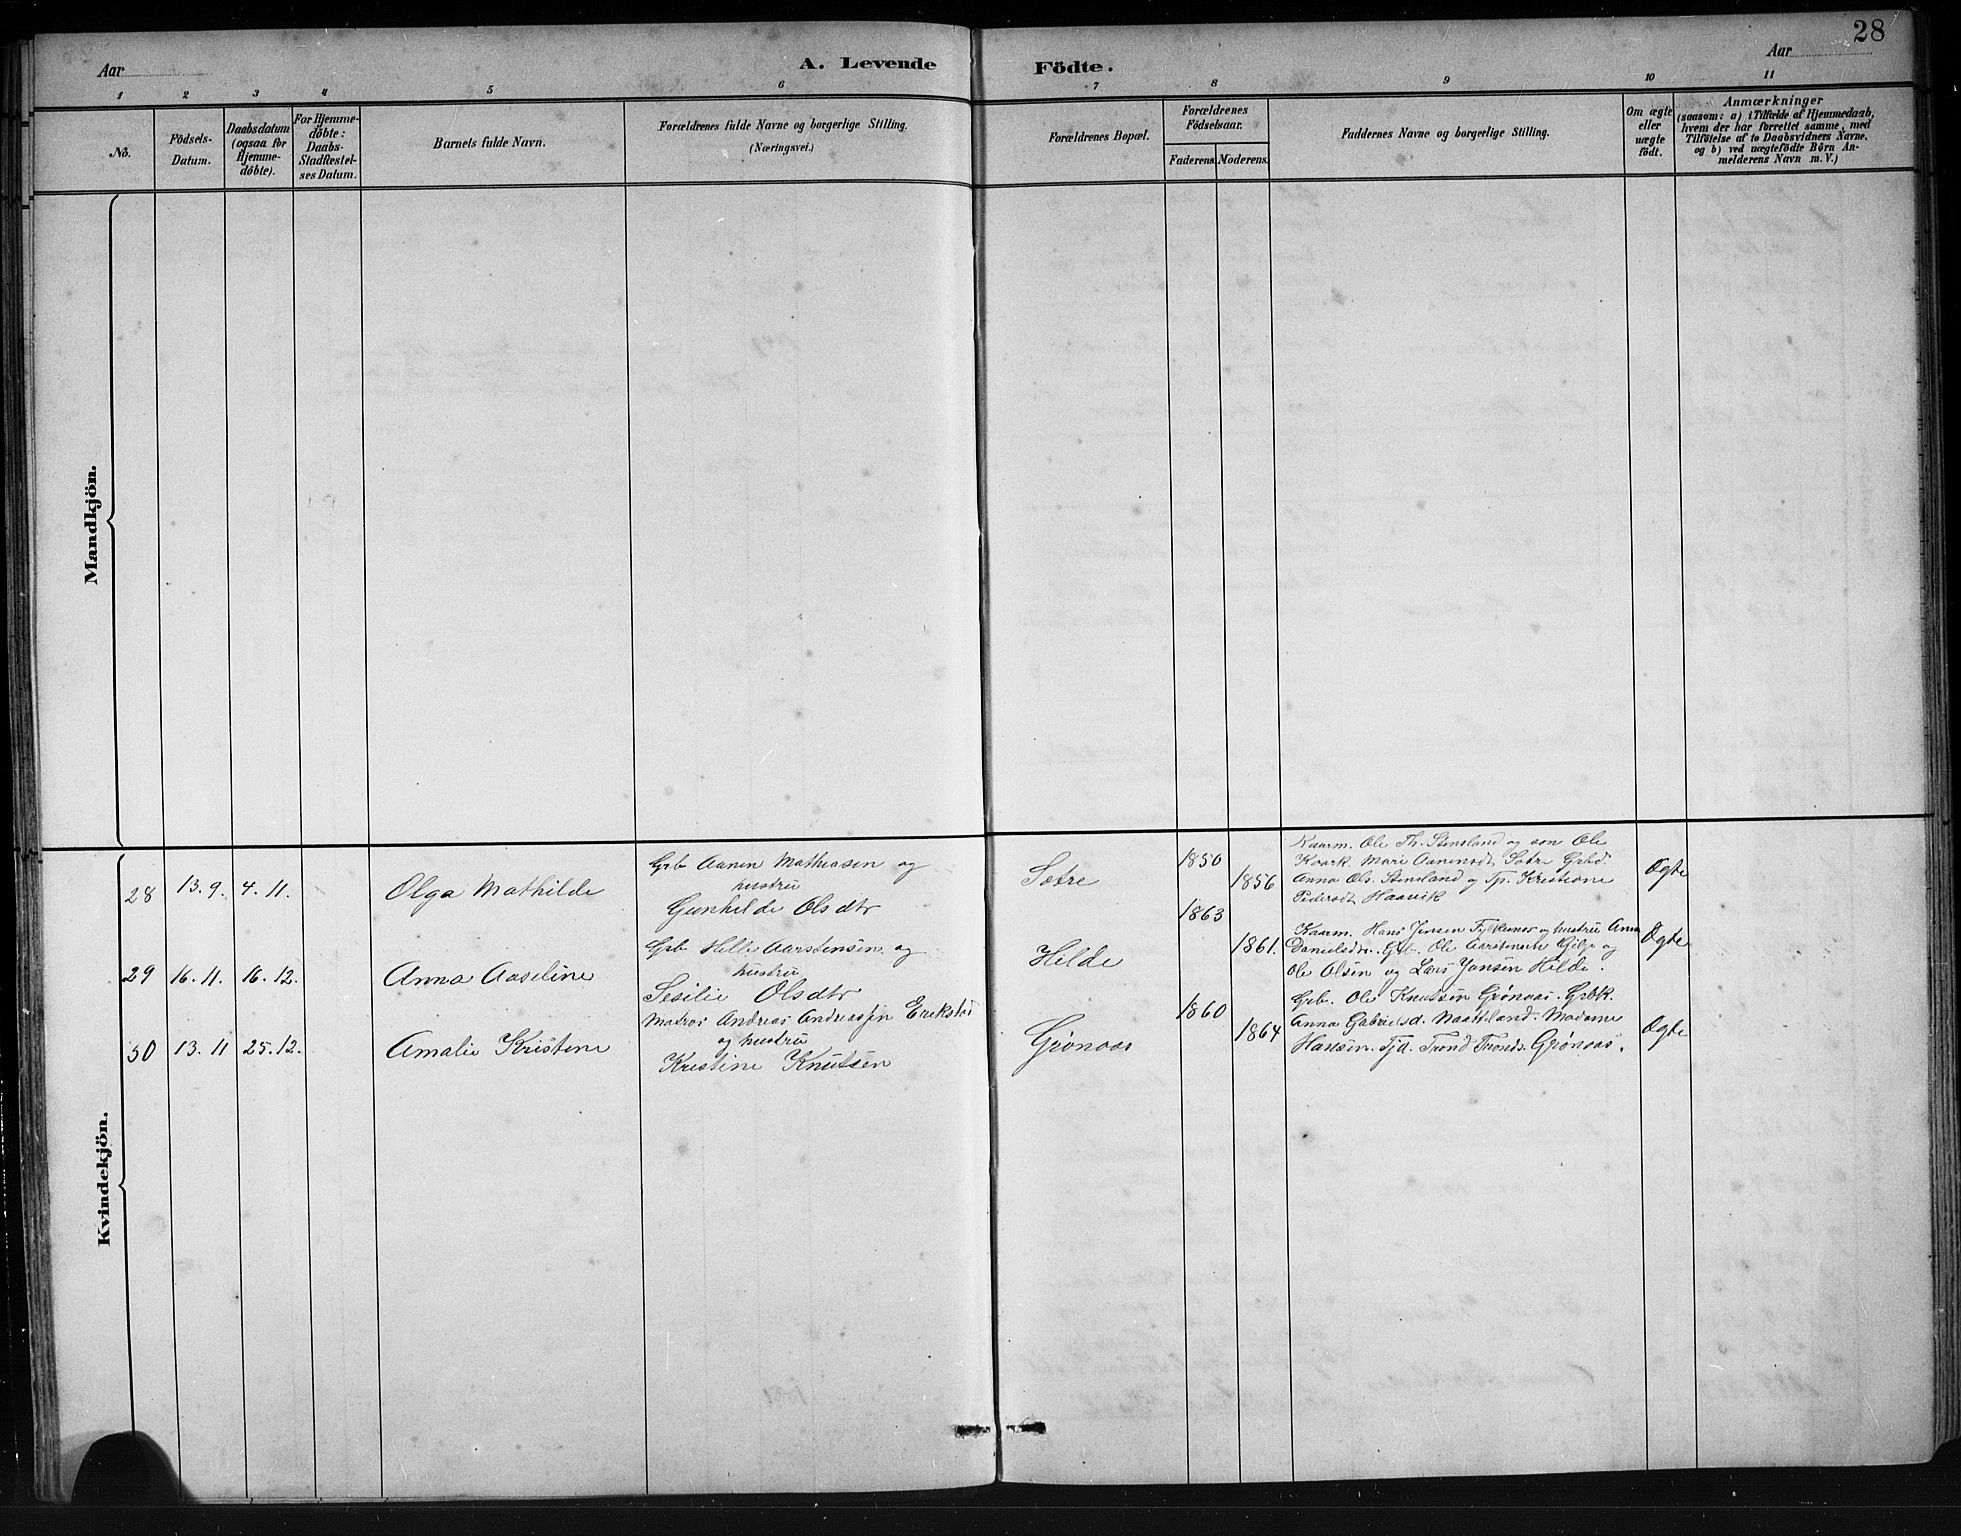 28
Aar
A. Levende Födte.
Aar
1 2 3 4 5 6 7 8 9 10 11
No.
Födsels-
Datum.
Daabsdatum
(ogsaa for
Hjemme-
döbte).
For Hjemme-
döbte:
Daabs-
Stadfæstel-
ses Datum.
Barnets fulde Navn.
Forældrenes fulde Navne og borgerlige Stilling.
(Næringsvei.)
Forældrenes Bopæl.
Forældrenes
Födselsaar.
Faderens. Moderens.
Faddernes Navne og borgerlige Stilling.
Om ægte
eller
uægte
födt.
Anmærkninger
(saasom: a) i Tilfælde af Hjemmedaab,
hvem der har forrettet samme, med
Tilföielse af to Daabsvidners Navne.
og b) ved uægtefödte Börn An-
melderens Navn m. V.)
Mandkjön.
Kvindekjön.
28 13. 9. 4. 11. Olga Mathilde
Grb Aanen Mathiasen og
hustru
Gunhilde Olsdtr
Sætre
1850
1856
Kaarm. Ole Th. Stensland og søn Ole
Kvark. Marie Aanensdt. Sætre Grbd.
Anna Ols. Stensland og Tp. Kristiane
Pedersdt Haavik
Ægte
29 16. 11. 16. 12. Anna Aaseline
Grb Helle Aarstensen og
hustru
Sesilie Olsdtr
Hilde
1863
1861.
Kaarm. Hans Jensen og hustru Anna
Danielsdtr. Grb. Ole Aarstensen og
Ole Olsen og Lars Jansen Hilde.
Ægte
30 13. 11 25. 12. Amalie Kristene
Matros Andreas Andreassen Erikstad
og hustru
Kristine Knutsen
Grønaas
1860
1864
Grb. Ole Knutsen Grønaas. Grbk.
Anna Gabrielsd. Naatteland. Madame
Hansen. Tjd. Trond Tronds. Grønaas.
Ægte